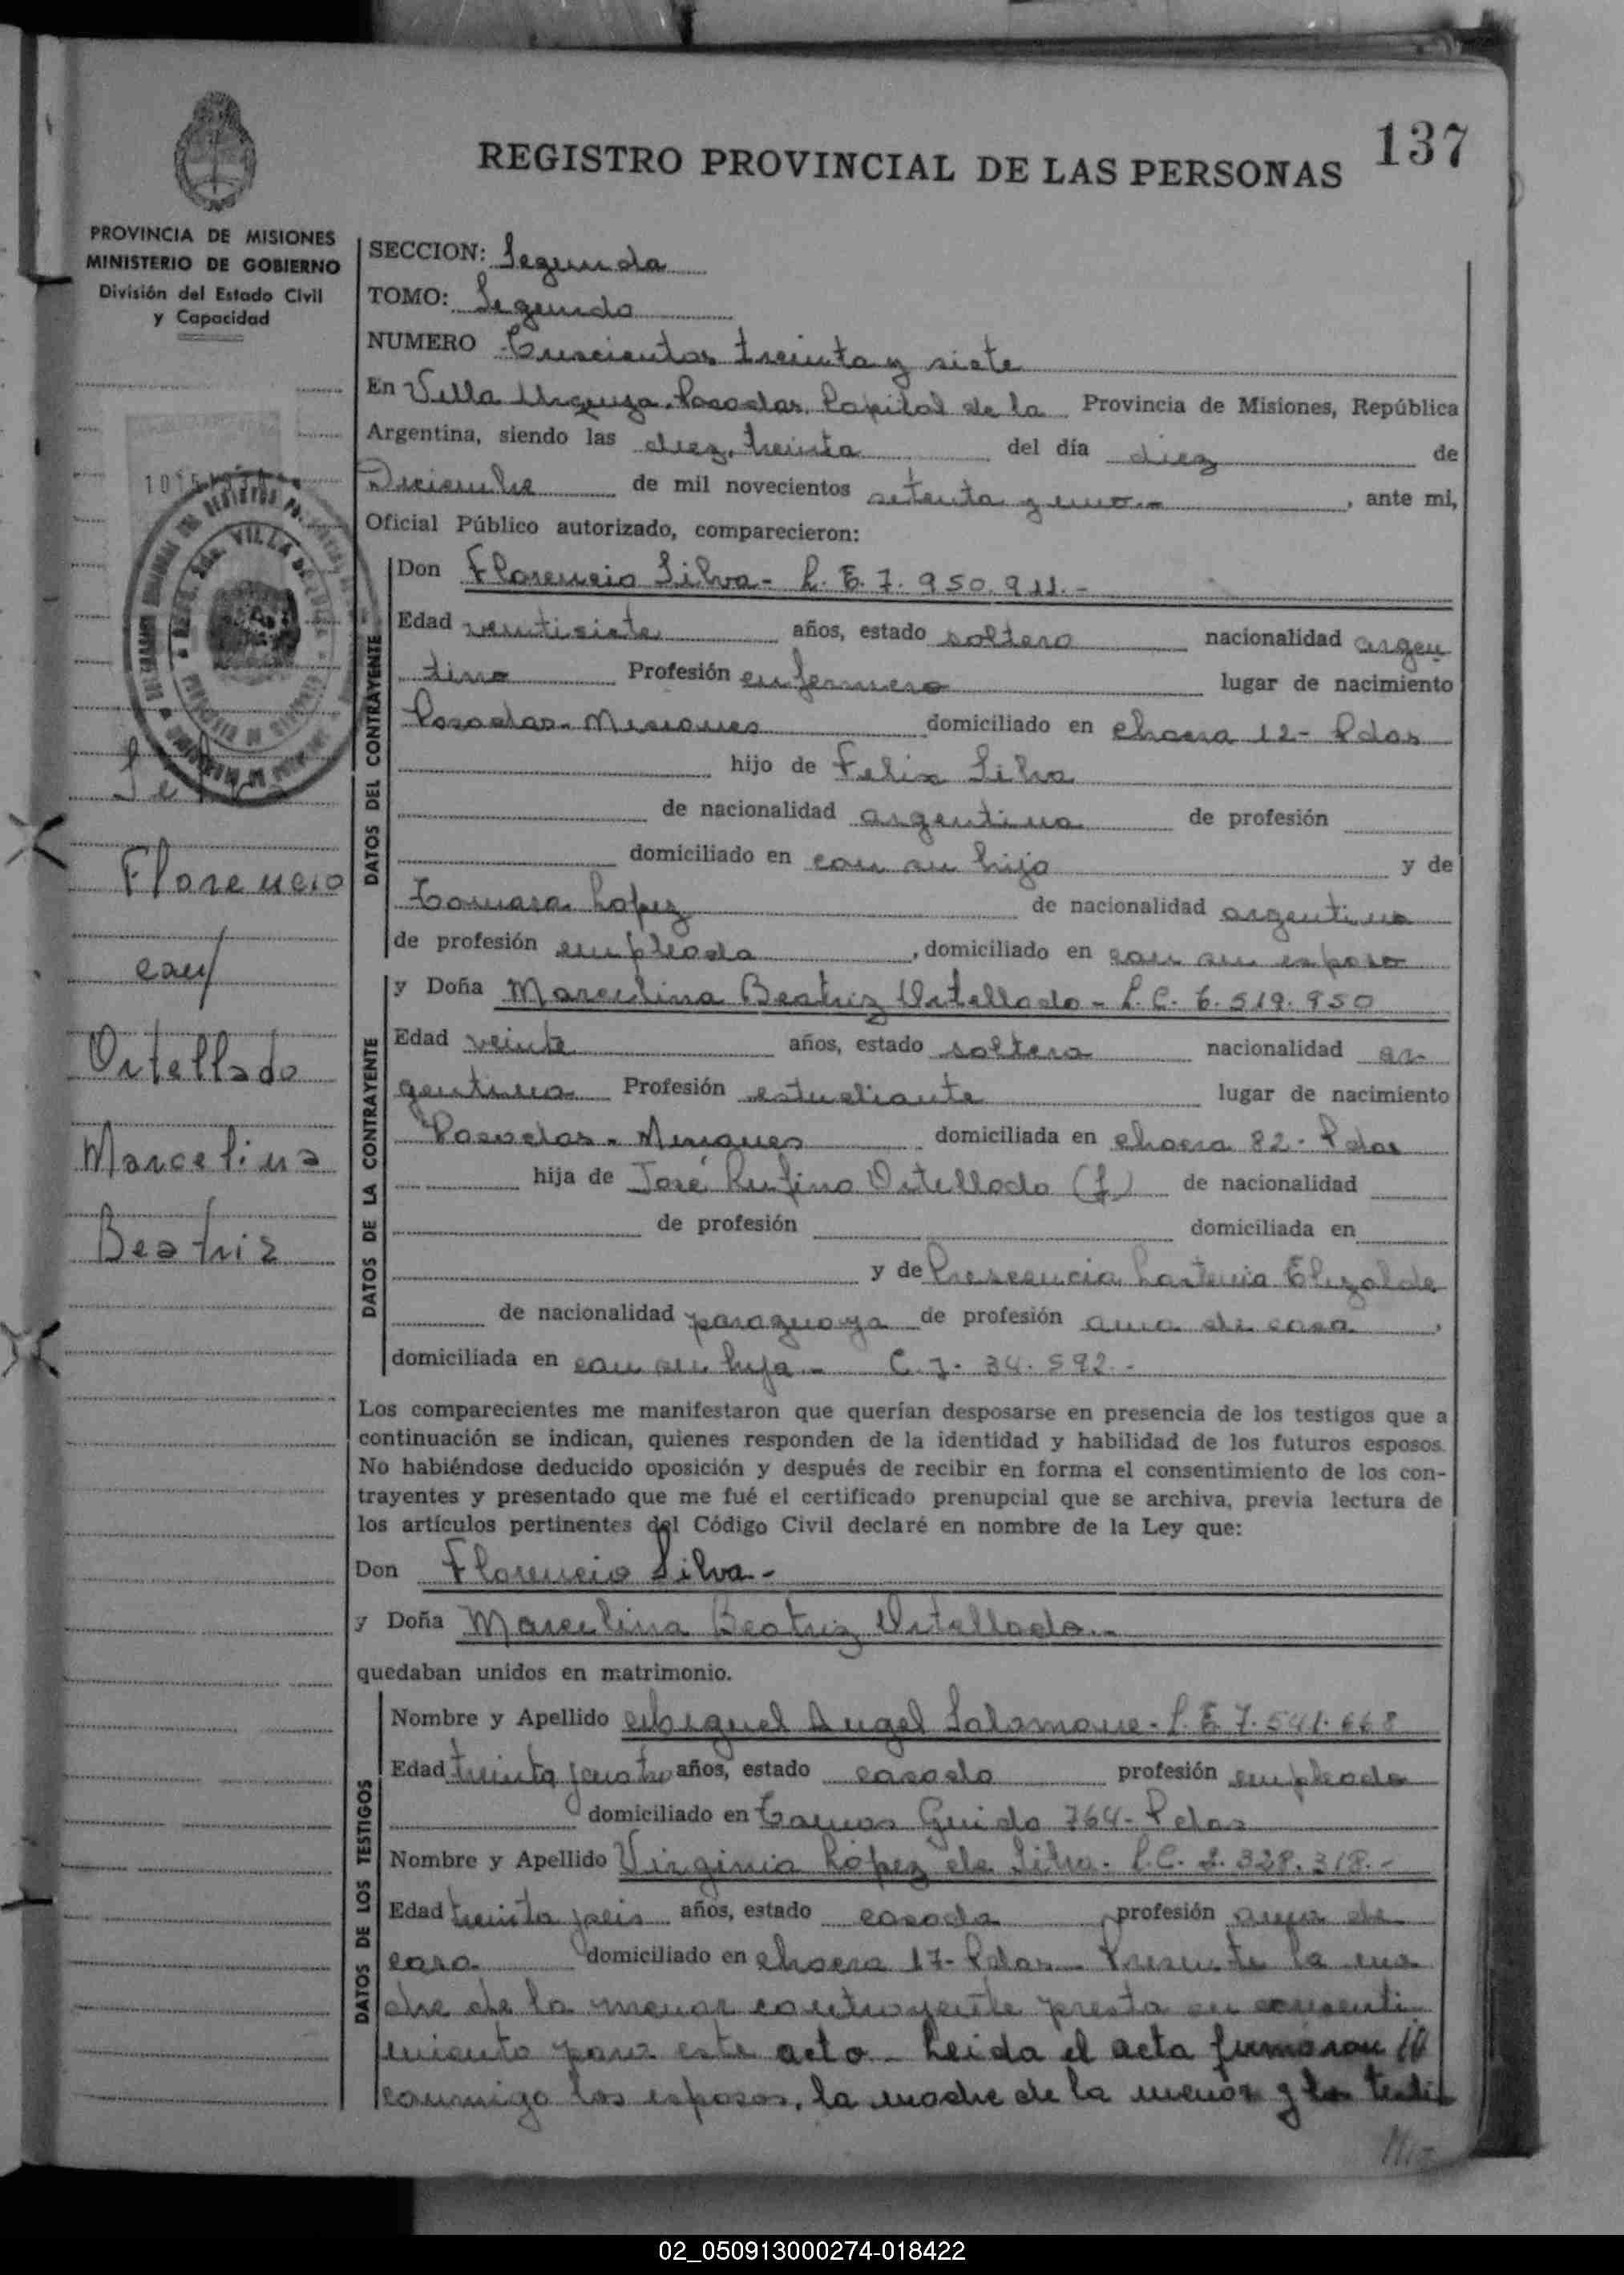 137
REGISTRO PROVINCIAL DE LAS PERSONAS
PROVINCIA DE MISIONES
MINISTERIO DE GOBIERNO
División del Estado Civil
y Capacidad
SECCION: Segunda
TOMO: Segundo
NUMERO treinta y siete
En Villa Urquiza. Posadas, Capital de la Provincia de Misiones, República
Argentina, siendo las diez, treinta del día diez de
Diciembre de mil novecientos setenta y uno.- , ante mi,
Oficial Público autorizado, comparecieron:
DATOS DEL CONTRAYENTE
Don Florencio Silva- L. E. 7. 950. 911. -
Edad veintisiete años, estado soltero nacionalidad argen
tino Profesión enfermero lugar de nacimiento
Posadas. Misiones domiciliado en chacra 12- Pdas
hijo de Felix Silva
de nacionalidad argentina de profesión
domiciliado en con su hijo y de
Lopez de nacionalidad argentina
de profesión empleada , domiciliado en con su esposo
DATOS DE LA CONTRAYENTE
y Doña Marcelina Beatriz Ortellado - L. C. 6. 519. 950
Edad veinte años, estado soltera nacionalidad ar
gentina Profesión estudiante lugar de nacimiento
Posadas - Misiones domiciliada en chacra 82 - Pdas
hija de José Rufino Ortellado (f) de nacionalidad
de profesión domiciliada en
y de Elizalde
de nacionalidad paraguaya de profesión ama de casa ,
domiciliada en con su hija - C. I. 34. 592. -
Los comparecientes me manifestaron que querían desposarse en presencia de los testigos que a
continuación se indican, quienes responden de la identidad y habilidad de los futuros esposos.
No habiéndose deducido oposición y después de recibir en forma el consentimiento de los con-
trayentes y presentado que me fué el certificado prenupcial que se archiva, previa lectura de
los artículos pertinentes del Código Civil declaré en nombre de la Ley que:
Don Florencio Silva -
y Doña Marcelina Beatriz Ortellado. -
quedaban unidos en matrimonio.
DATOS DE LOS TESTIGOS
Nombre y Apellido Miguel Angel Salomone - L. E. 7. 541. 668
Edad treinta y cuatro años, estado casado profesión empleado
domiciliado en Guido 764 - Pdas
Nombre y Apellido Virginia López de Silva - L. C. 328. 318. -
Edad treinta y seis años, estado casada profesión ama de
casa domiciliado en chacra 17 - Pdas - Presente la ma
dre de la menor contrayente presta su consenti
miento para este acto - Leida el acta firmaron
conmigo los esposos, la madre de la menor y los testi
Florencio
con
Ortellado
Marcelina
Beatriz
02_050913000274-018422